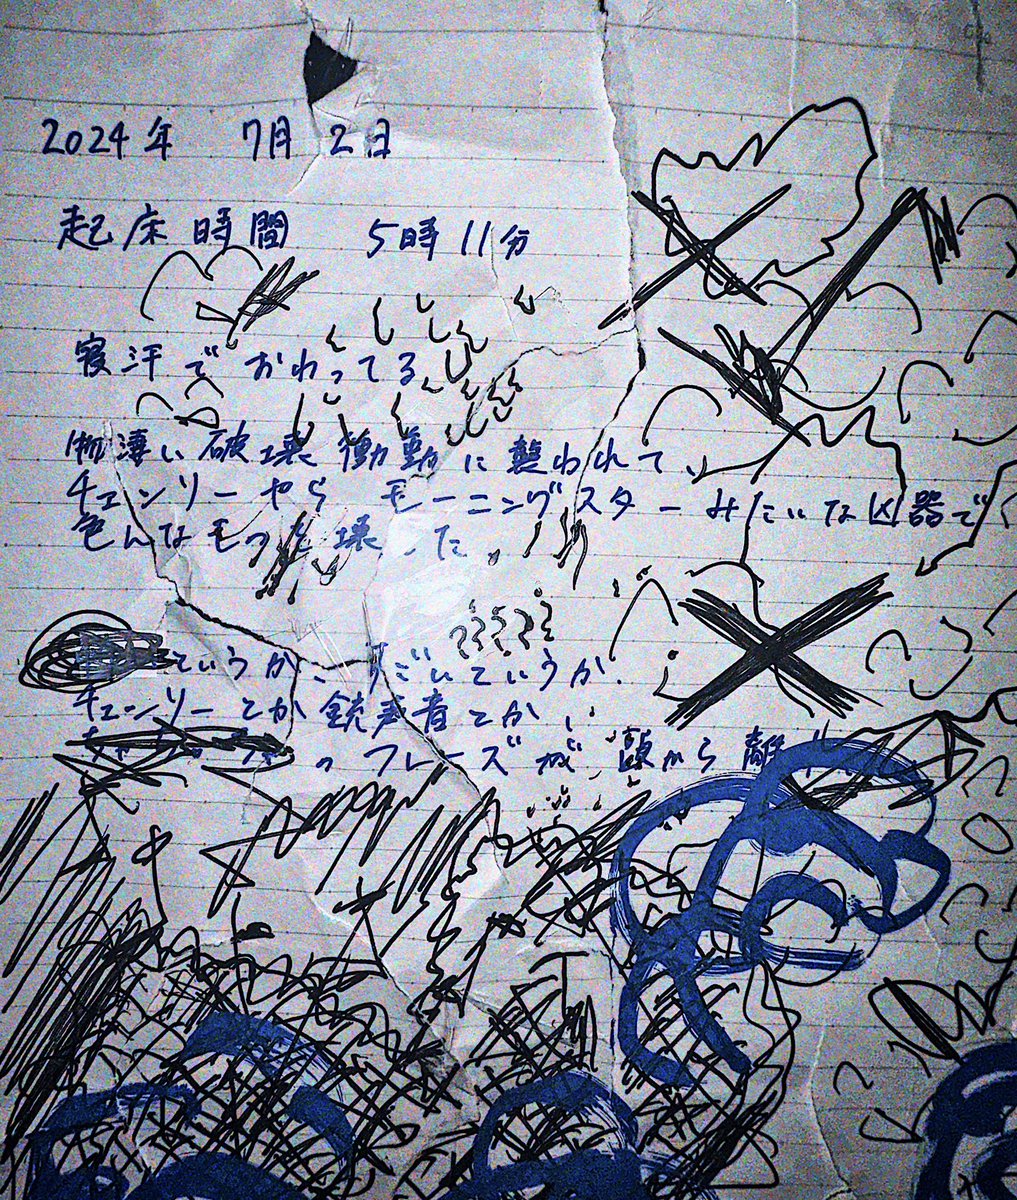 2024年 7月2日
起床時間 5時11分
寝汗でおわってる
物凄い破壊衝動に襲われて、
チェンソーやら モーニングスターみたいな凶器で
色んなモつを壊した。
ていうか、すごいていうか、
チェンソーとか銃声音とか、
フレーズが、頭から離れ